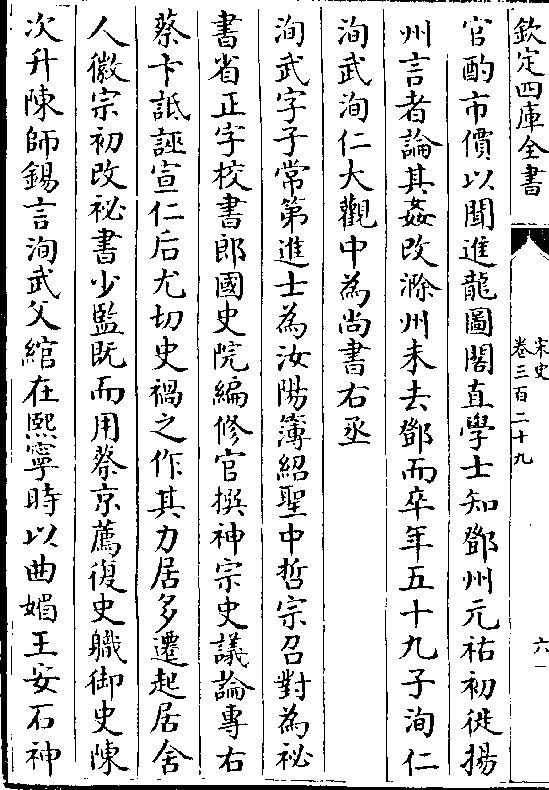 欽定四庫全書
宋史
卷三百二十九
六
官酌市價以聞進龍圖閣直學士知鄧州元祐初徙揚
州言者論其姦改滁州未去鄧而卒年五十九子洵仁
洵武洵仁大觀中為尚書右丞
洵武字子常第進士為汝陽簿紹聖中哲宗召對為祕
書省正字校書郎國史院編修官撰神宗史議論專右
蔡卞詆誣宣仁后尤切史禍之作其力居多遷起居舍
人徽宗初改祕書少監既而用蔡京薦復史職御史陳
次升陳師錫言洵武父綰在熙寧時以曲媚王安石神